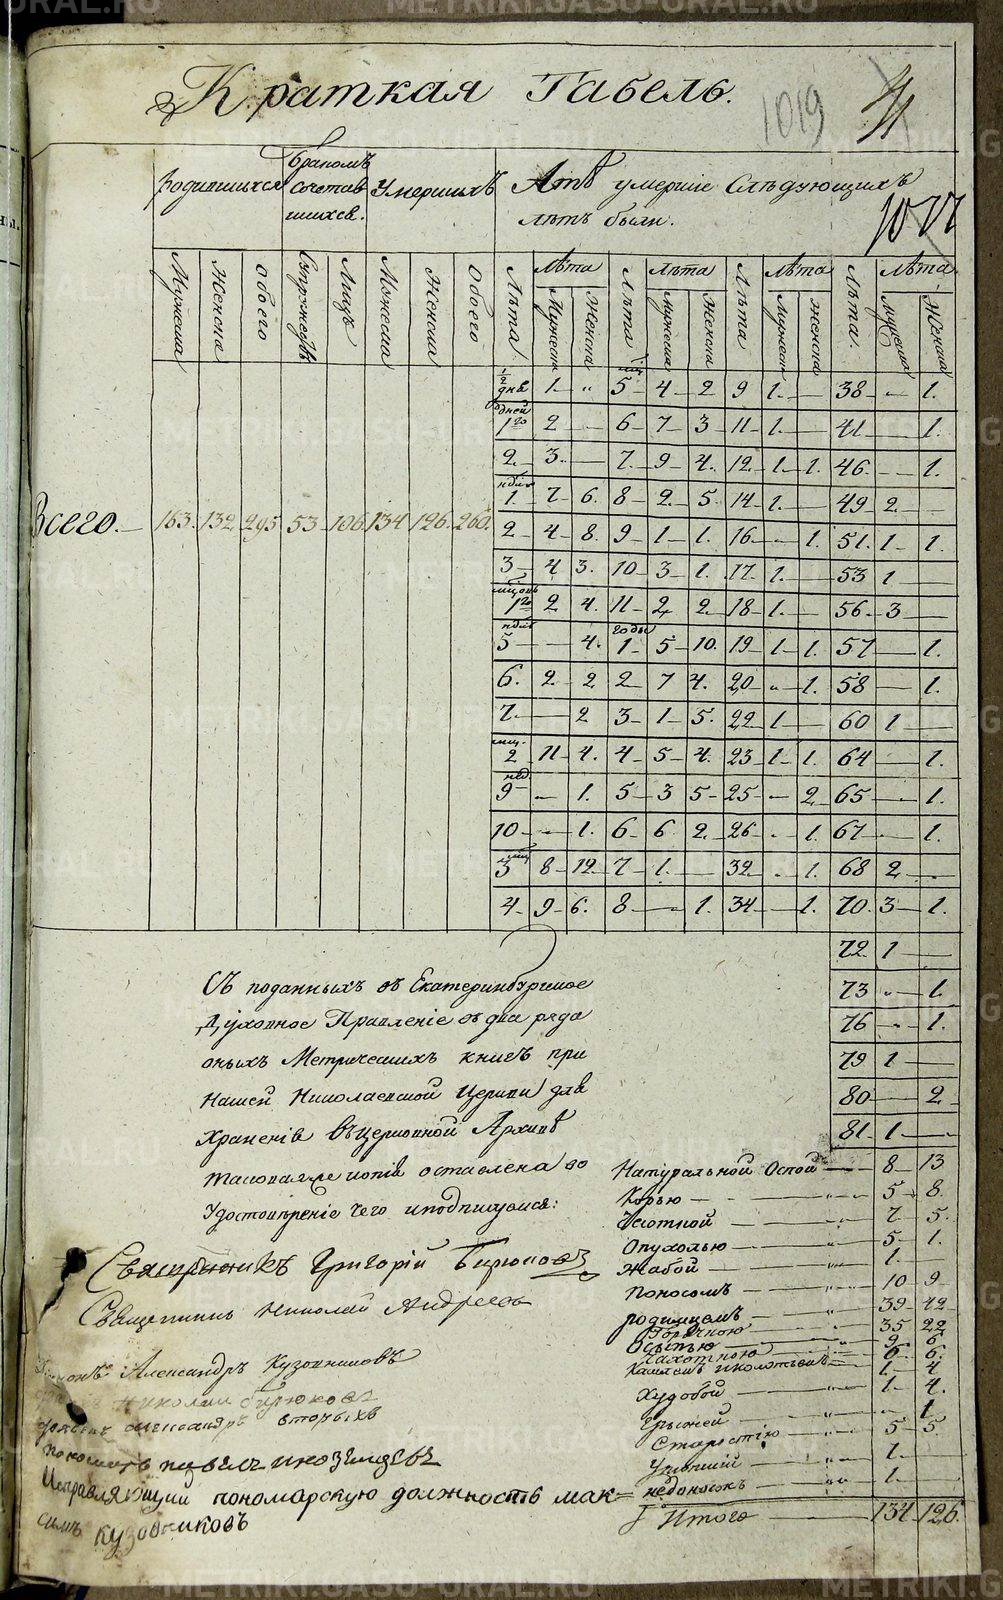 Краткая Табель.
1019
Родившихся
Бракомъ сочетавшихся.
Умершихъ
Лѣтъ умершіе Слѣдующихъ
лѣтъ были.
Мужеска Женска Обоего Супружествъ Лицъ Мужеска Женска Обоего Лѣта Лѣта Лѣта Лѣта Лѣта Лѣта. Лѣта
Мужеска Женска Мужеска Женска Мужеска Женска Мужеска Женска
Всего. 163. 132 295 53 106 134 126. 260.
½ дня 1 " 5 4 2 9 1 — 38 — 1.
дней 1го 2 — 6 7 3 11 1 — 41 — 1.
2. 3. — 7. 9 4. 12. 1 1. 46. — 1.
1 7 6. 8 2 5. 14 1. — 49 2 —
2 4 8. 9 1 1. 16 — 1. 51. 1 1.
3 4 3. 10 3 1. 17. 1. — 53 1 —
1го 2 4. 11 2 2. 18 1. — 56 3 —
5 — 4. годы 1 5 10. 19 1 1. 57 — 1.
6. 2. 2 2 7 4. 20 " 1. 58 — 1.
7. — 2 3 1 5. 22 1 — 60 1 —
2 11 4. 4 5 4. 23 1 1. 64 — 1.
нед. 9 — 1. 5 3 5 25 — 2 65 — 1.
10 — 1. 6 6 2. 26 . 1. 67 — 1.
3 8 12. 7 1. — 32 . 1. 68 2 —
4. 9 6. 8 — 1. 34 — 1. 70. 3 1.
72 1 —
73 " 1.
76 — 1.
79 1 —
80 — 2
81. 1 —
Съ поданныхъ въ Екатеринбургское
Духовное Правленіе въ два ряда
оныхъ Метрическихъ книгъ при
нашей Николаевской Церкви для
Храненія въ церковной Архивѣ
таковая же копія оставлена во
Удостовѣреніе чего и подпишуемся:
Священникъ Григорій Бирюковъ
Священникъ Николай Андреевъ
Александръ Кузовниковъ
Николай Бирюковъ
Александръ Вторыхъ
Исправляющий пономарскую должность Мак=
симъ Кузовниковъ
Натуральной Оспой — 8 13
Корью — 5 8.
Чахотной — 7 5.
Опухолью — 5 1.
Жабой — 1.
Поносомъ — 10 9
родимцемъ — 39 42
Горячкою 35 22
9 6
6 6.
1. 4
Худобой — 1 4.
Грыжей — 1
Старостію — 5 5.
1.
недоносокъ — 1.
Итого — 134 126.